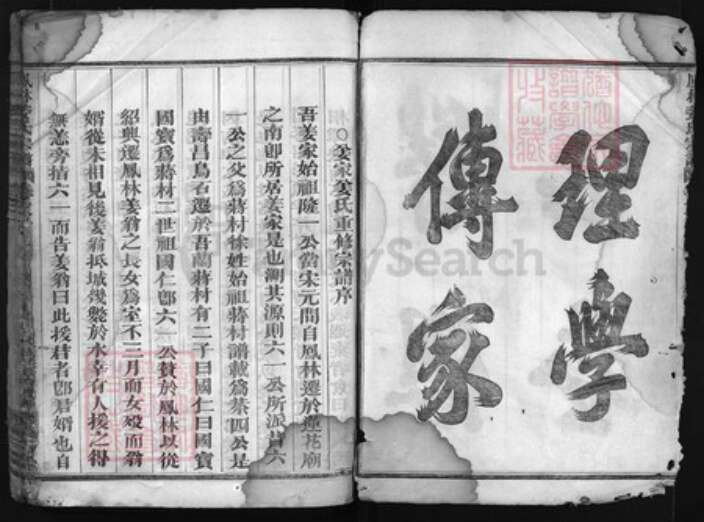 理學
傳家
姜家姜氏重修宗譜序
吾姜家始祖隆一公當宋元間自鳳林遷於蓮花廟
之南卽所居姜家是也溯其源則六一公所派昔六
一公之父爲蔣村徐姓始祖蔣村譜載爲荣四公是
由壽昌烏石遷於吾蘭蔣村有二子曰國仁曰國寶
國寶爲蔣村二世祖國仁卽六一公贅於鳳林以從
紹興遷鳳林姜翁之長女爲室不三月而女歿而翁
婿從未相見後姜翁抵城幾斃於水幸有人援之得
無恙旁指六一而告姜翁曰此援君者卽君婿也自
FamilySearch